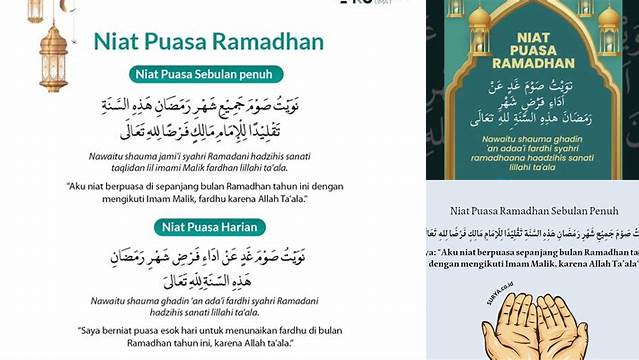 UMAT
Niat Puasa Ramadhan
Niat Puasa Sebulan penuh
نَوَيْتُ صَوْمَ جَمِيْعِ شَهْرِ رَمَضَانَ هٰذِهِ السَّنَةِ
تَقْلِيْدًا لِلْإِمَامِ مَالِكٍ فَرْضًا لِلهِ تَعَالَى
Nawaitu shauma jami'i syahri Ramadani hadzihis sanati
taqlidan lil imami Malik fardhan lillahi ta'ala.
“Aku niat berpuasa di sepanjang bulan Ramadhan tahun ini dengan
mengikuti Imam Malik, fardhu karena Allah Ta'ala.”
Niat Puasa Harian
نَوَيْتُ صَوْمَ غَدٍ عَنْ اَدَاءِ فَرْضِ شَهْرِ رَمَضَانَ
هٰذِهِ السَّنَةِ لِلهِ تَعَالَى
Nawaitu shauma ghadin 'an ada'i fardhi syahri Ramadani
hadzihis sanati lillahi ta'ala.
“Saya berniat puasa esok hari untuk menunaikan fardhu di bulan
Ramadhan tahun ini, karena Allah Ta'ala.”
NIAT
PUASA
RAMADHAN
نَوَيْتُ صَوْمَ غَدٍ عَنْ
اَدَاءِ فَرْضِ شَهْرِ
رَمَضَانَ هٰذِهِ السَّنَةِ لِلهِ تَعَالَى
Nawaitu shauma ghadin
'an adaa'i fardhi syahri
ramadhaana haadzihis sanati
lillahi ta'ala
Niat Puasa Ramadhan Sebulan Penuh
صَوْمَ جَمِيْعِ شَهْرِ رَمَضَانَ هٰذِهِ السَّنَةِ تَقْلِيْدًا لِلْإِمَامِ مَالِكٍ فَرْضًا لِلهِ تَعَالَى
"Aku niat berpuasa sepanjang bulan Ramadhan
dengan mengikuti Imam Malik, karena Allah Ta'ala"
SURYA.co.id